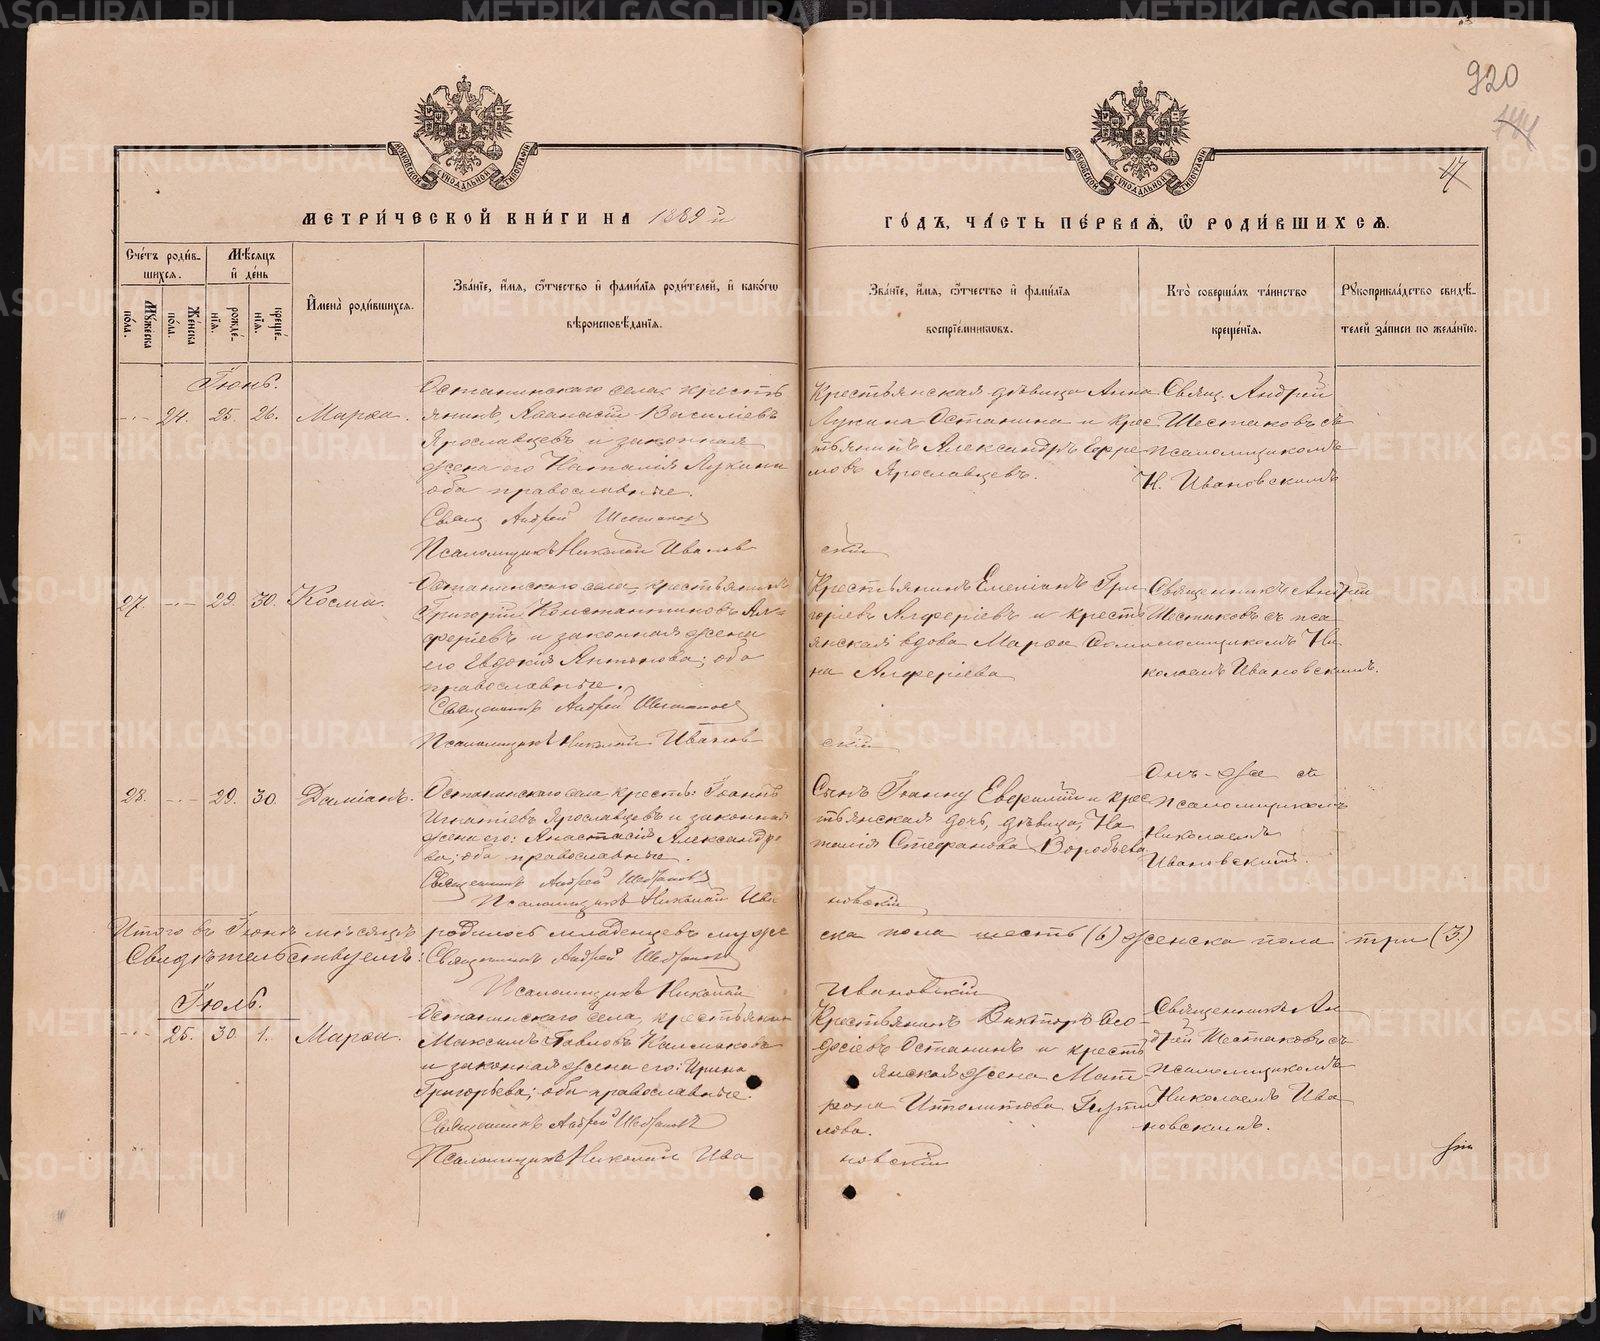 920
144
17
МОСКОВСКОЙ СУНОДАЛЬНОЙ ТИПОГРАФІИ
МОСКОВСКОЙ СУНОДАЛЬНОЙ ТИПОГРАФІИ
МЕТРИ́ЧЕСКОЙ КНИ́ГИ НА 1889 й
ГО́ДЪ, ЧА́СТЬ ПЕ́РВАѦ, Ѿ РОДИ́ВШИХСѦ.
Сче́тъ роди́вшихсѧ.
Мѣ́сѧцъ и҆ де́нь
Мꙋ́жеска по́ла.
Же́нска по́ла.
рожде́нїѧ.
креще́нїѧ.
И҆мена̀ роди́вшихсѧ.
Зва́нїе, и҆́мѧ, ѻ҆́тчество и҆ фами́лїѧ роди́телей, и҆ како́гѡ
вѣроисповѣ́данїѧ.
Зва́нїе, и҆́мѧ, ѻ҆́тчество и҆ фами́лїѧ
воспрїе́мникѡвъ.
Кто̀ соверша́лъ та́инство
креще́нїѧ.
Рꙋкоприкла́дство свидѣ́телей за́писи по жела́нїю.
Іюнь.
24. 25. 26. Марѳа.
Останинскаго села, кресть
янинъ, Аѳанасій Василіевъ
Ярославцевъ и законная
жена его Наталія Лукина
оба православные.
Свящ. Андрей Шестаковъ
Псаломщикъ Николай Иванов
Крестьянская дѣвица Анна
Лукина Останина и крес
тьянинъ Александръ Ефре
мовъ Ярославцевъ.
скій
Свящ. Андрей
Шестаковъ съ
псаломщикомъ
Н. Ивановскимъ
27. 29. 30. Косма.
Останинскаго села, крестьянинъ
Григорій Константиновъ Ал
феріевъ и законная жена
его Евдокія Антонова; оба
православные.
Священникъ Андрей Шестаковъ
Псаломщикъ Николай Иванов
Крестьянинъ Емеліанъ Гри
горіевъ Алферіевъ и кресть
янская вдова Марѳа
на Алферіева
скій
Священникъ Андрей
Шестаковъ съ пса
ломщикомъ Ни
колаемъ Ивановскимъ.
28. 29. 30. Даміанъ.
Останинскаго села кресть: Іоаннъ
Игнатіевъ Ярославцевъ и законная
жена его: Анастасія Александро
ва; оба православные.
Священникъ Андрей Шестаковъ
Псаломщикъ Николай Ива
Сынъ Іоанну и крес
тьянская дочь, дѣвица, На
талія Стефанова Воробьева
новскій
Онъ-же съ
псаломщикомъ
Николаемъ
Ивановскимъ.
Итого въ Іюнѣ мѣсяцѣ родилось младенцевъ муже
ска пола шесть (6) женска пола три (3.)
Свидѣтельствуемъ: Священникъ Андрей Шестаковъ
Псаломщикъ Николай
Ивановскій
Іюль.
25. 30. 1. Марѳа.
Останинскаго села, крестьянинъ
Максимъ Павловъ Калмаковъ
и законная жена его: Ирина
Григорьева; оба православные.
Священникъ Андрей Шестаковъ
Псаломщикъ Николай Ива
Крестьянинъ Викторъ Ѳео
досіевъ Останинъ и кресть
янская жена Мат
рона Ипполитова
лова.
новскій
Священникъ Ан
дрей Шестаковъ съ
псаломщикомъ
Николаемъ Ива
новскимъ.
METRIKI.GASO-URAL.RU